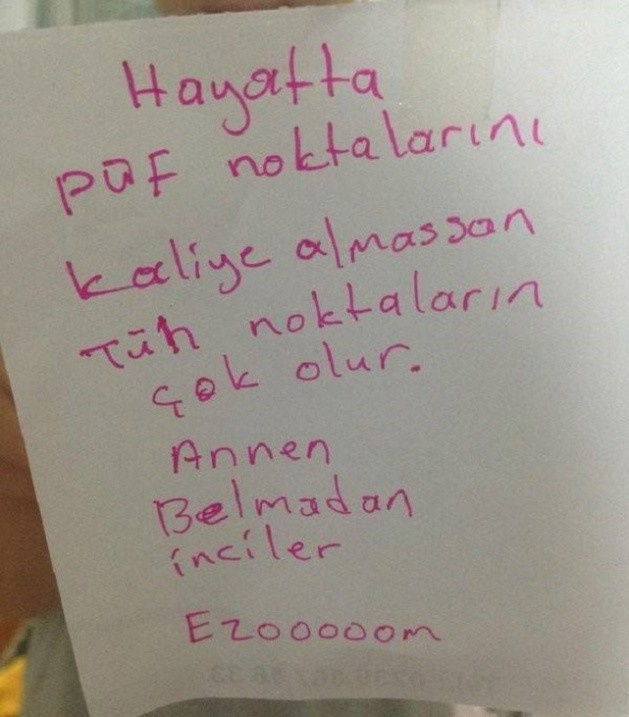 Hayatta
püf noktalarını
kaliye almassan
Tüh noktaların
çok olur.
Annen
Belmadan
inciler
Ezooooom